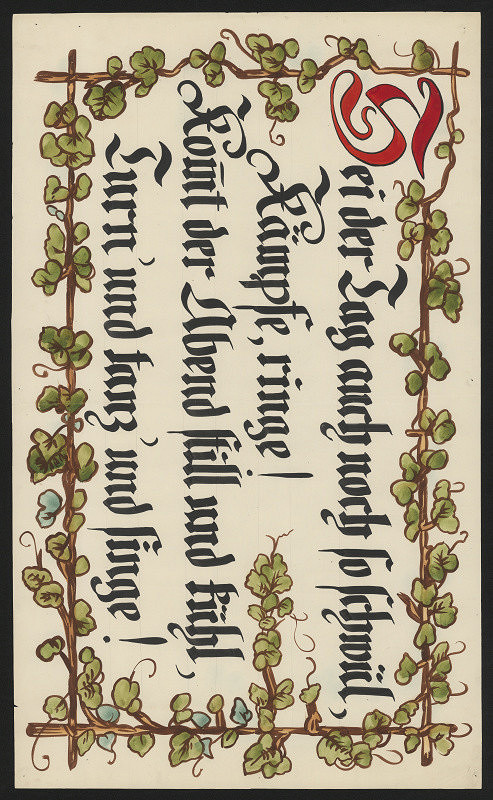 Sei der Tag auch noch so schwül,
Kämpfe, ringe!
Kom̄t der Abend still und kühl,
Turn' und tanz' und singe!